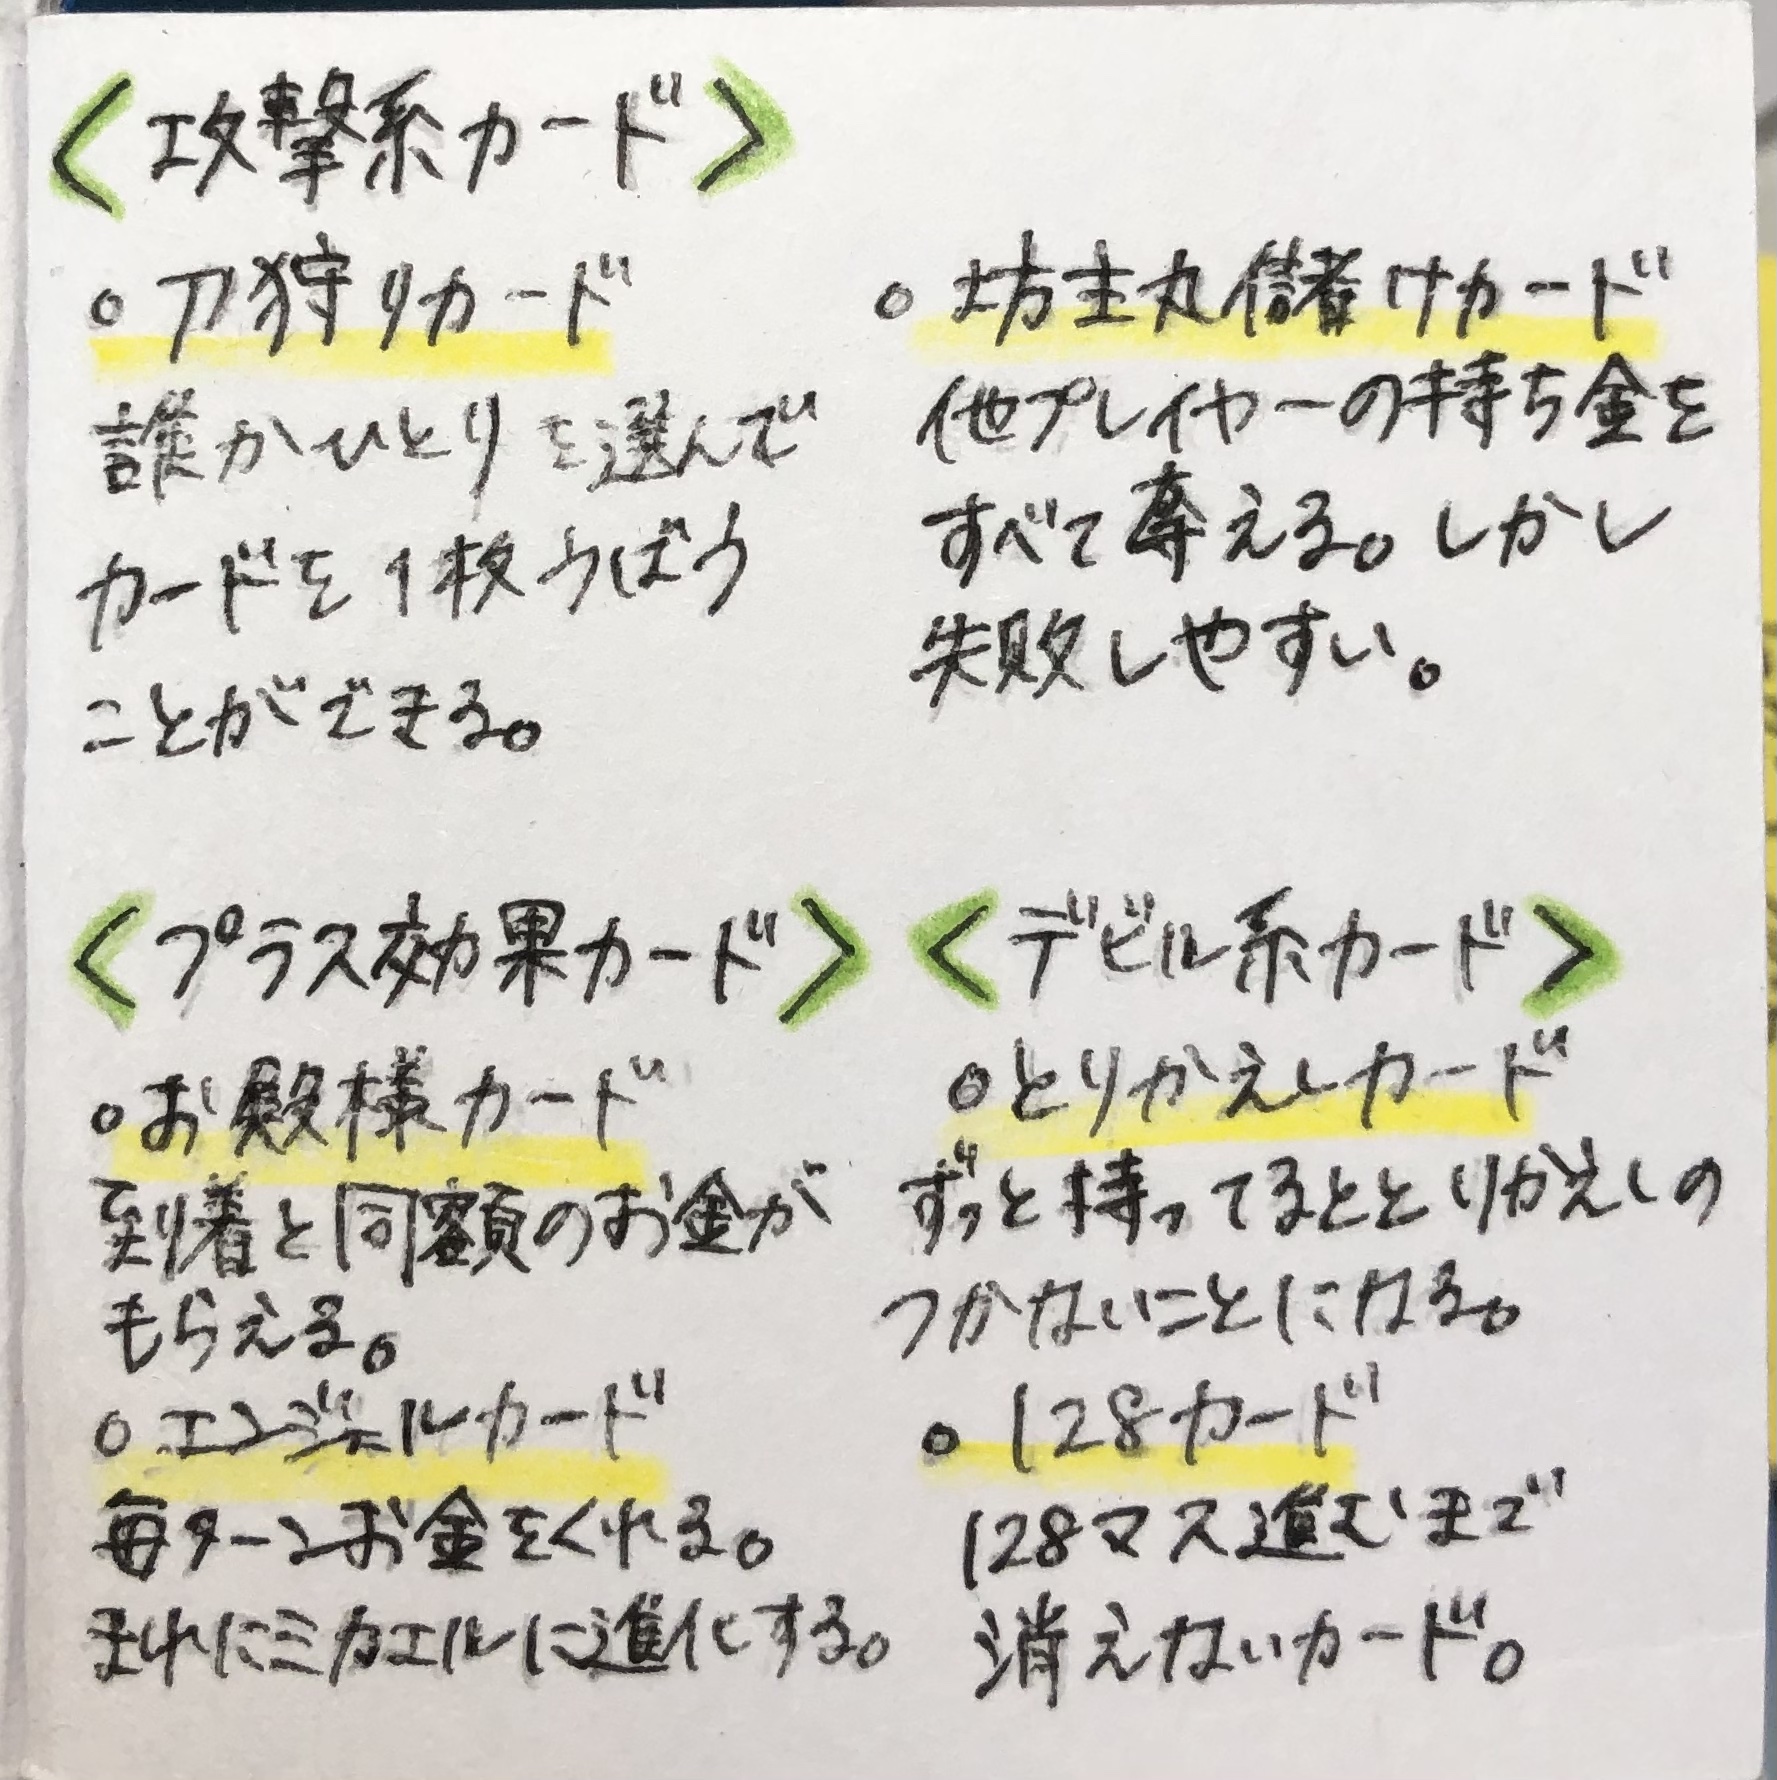 <攻撃系カード>
○刀狩りカード
誰かひとりを選んで
カードを1枚うばう
ことができる。
○坊主丸儲けカード
他プレイヤーの持ち金を
すべて奪える。しかし
失敗しやすい。
<プラス効果カード>
○お殿様カード
到着と同額のお金が
もらえる。
○エンジェルカード
毎ターンお金をくれる。
まれにミカエルに進化する。
<デビル系カード>
○とりかえしカード
ずっと持ってるととりかえしの
つかないことになる。
○128カード
128マス進むまで
消えないカード。